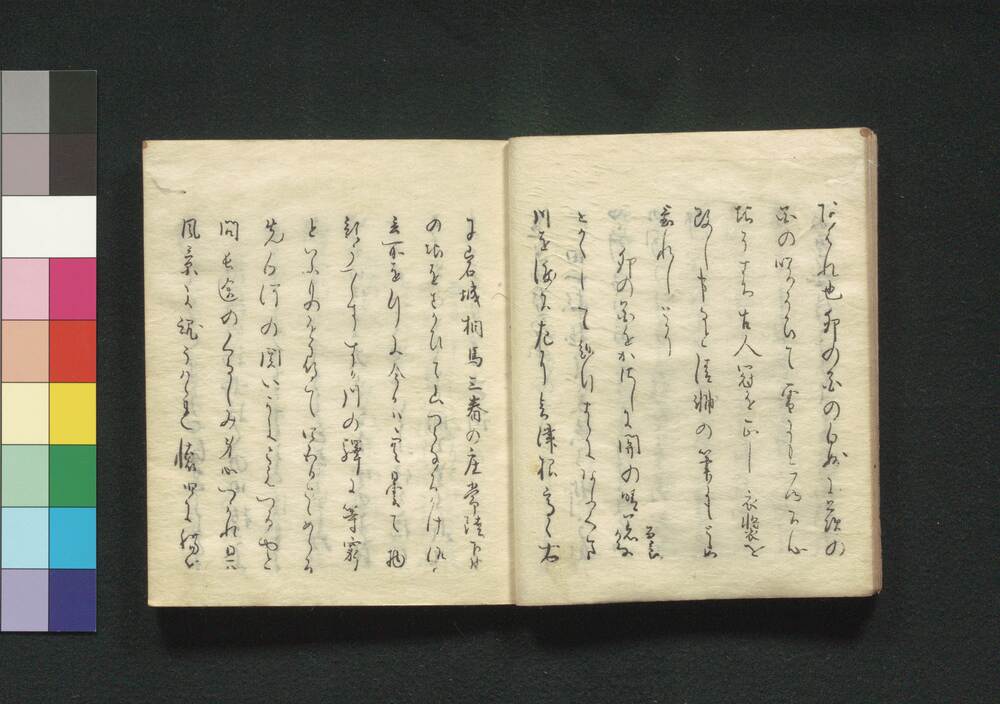 なをあはれ也卯の花の白妙に茨の
花の咲そひて雪にもこゆる心
地そする古人冠を正し衣装を
改し事なと清輔の筆にもとゝめ
置れしとそ
卯の花をかさしに関の晴着かな
曽良
とかくして越行まゝにあふくま
川を渡る左に会津根高く右
に岩城相馬三春の庄常陸下野
の地をさかひて山つらなるかけ沼と
云所を行に今日は空曇て物
影うつらすすか川の驛に等窮
といふものを尋て四五日とゝめらる
先白河の関いかにこえつるやと
問長途のくるしみ身心つかれ且は
風景に魂うはゝれ懐旧に膓を